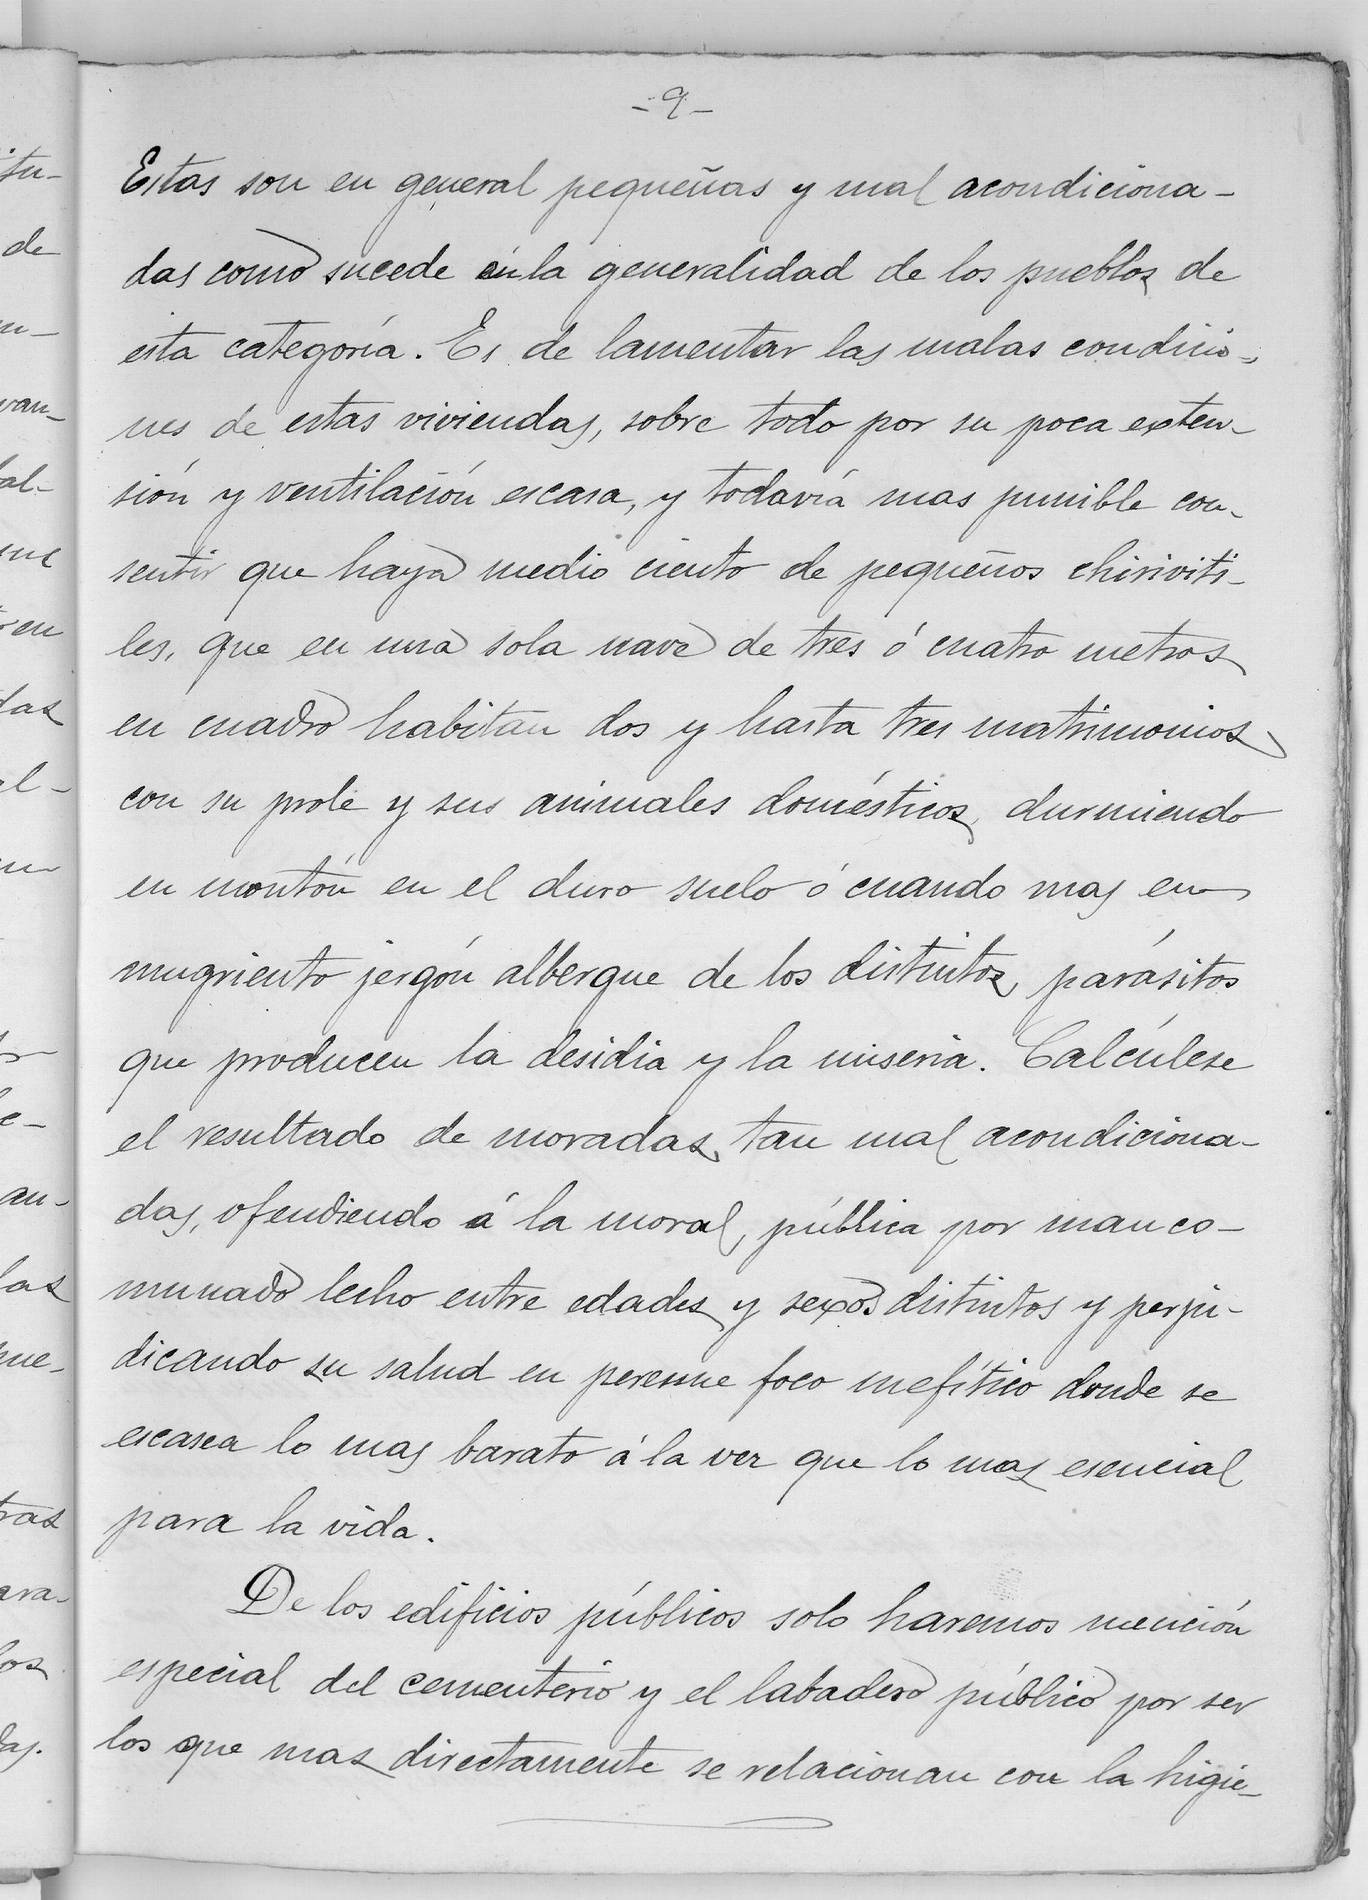 - 9 -
Estas son en general pequeñas y mal acondiciona-
das como sucede en la generalidad de los pueblos de
esta categoría. Es de lamentar las malas condicio-
nes de estas viviendas, sobre todo por su poca exten-
sión y ventilación escasa, y todavía mas punible con-
sentir que haya medio ciento de pequeños chiriviti-
les, que en una sola nave de tres ó cuatro metros
en cuadro habitan dos y hasta tres matrimonios
con su prole y sus animales domésticos, durmiendo
en montón en el duro suelo ó cuando mas en
mugriento jergón albergue de los distintos parásitos
que producen la desidia y la miseria. Calcúlese
el resultado de moradas tan mal acondiciona-
das, ofendiendo á la moral pública por manco-
munado lecho entre edades y sexos distintos y perju-
dicando su salud en perenne foco mefítico donde se
escasea lo mas barato á la vez que lo mas esencial
para la vida.
De los edificios públicos solo haremos mención
especial del cementerio y el labadero público por ser
los que mas directamente se relacionan con la higie-
itu-
de
van-
al-
me
ren
das
al-
e-
an-
las
ue-
ras
ara-
los